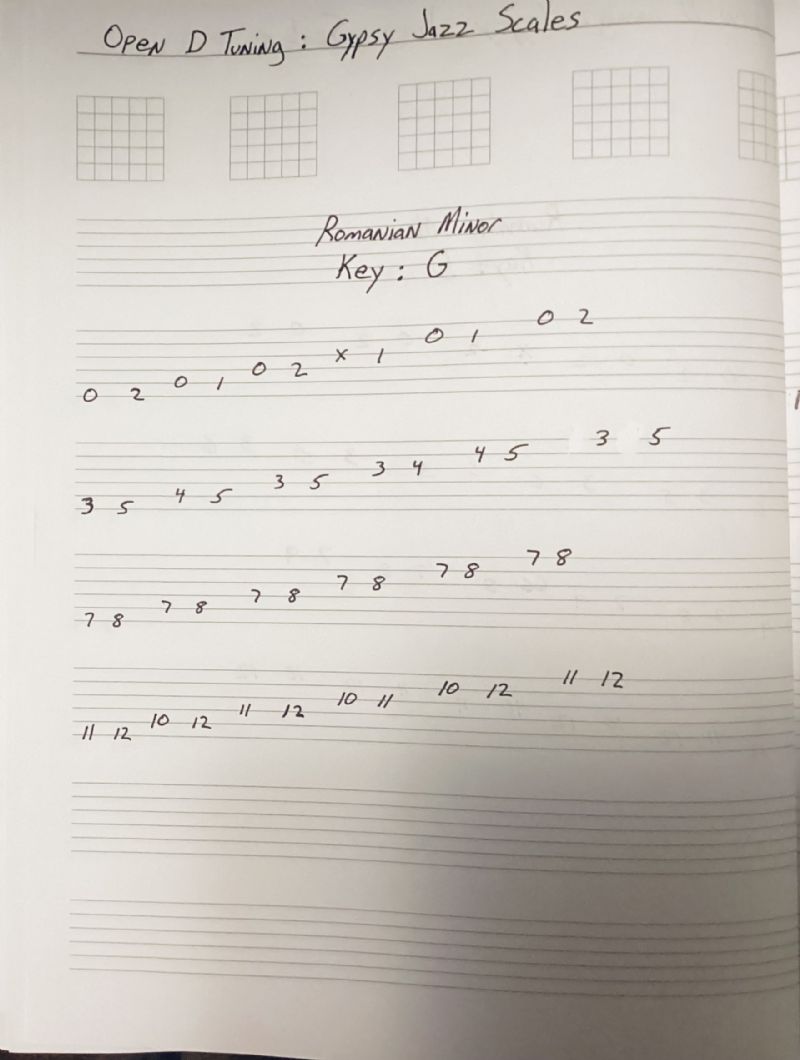 Open D Tuning: Gypsy Jazz Scales
Romanian Minor
Key: G
0 2 0 1 0 2 x 1 0 1 0 2
3 5 4 5 3 5 3 4 4 5 3 5
7 8 7 8 7 8 7 8 7 8 7 8
11 12 10 12 11 12 10 11 10 12 11 12